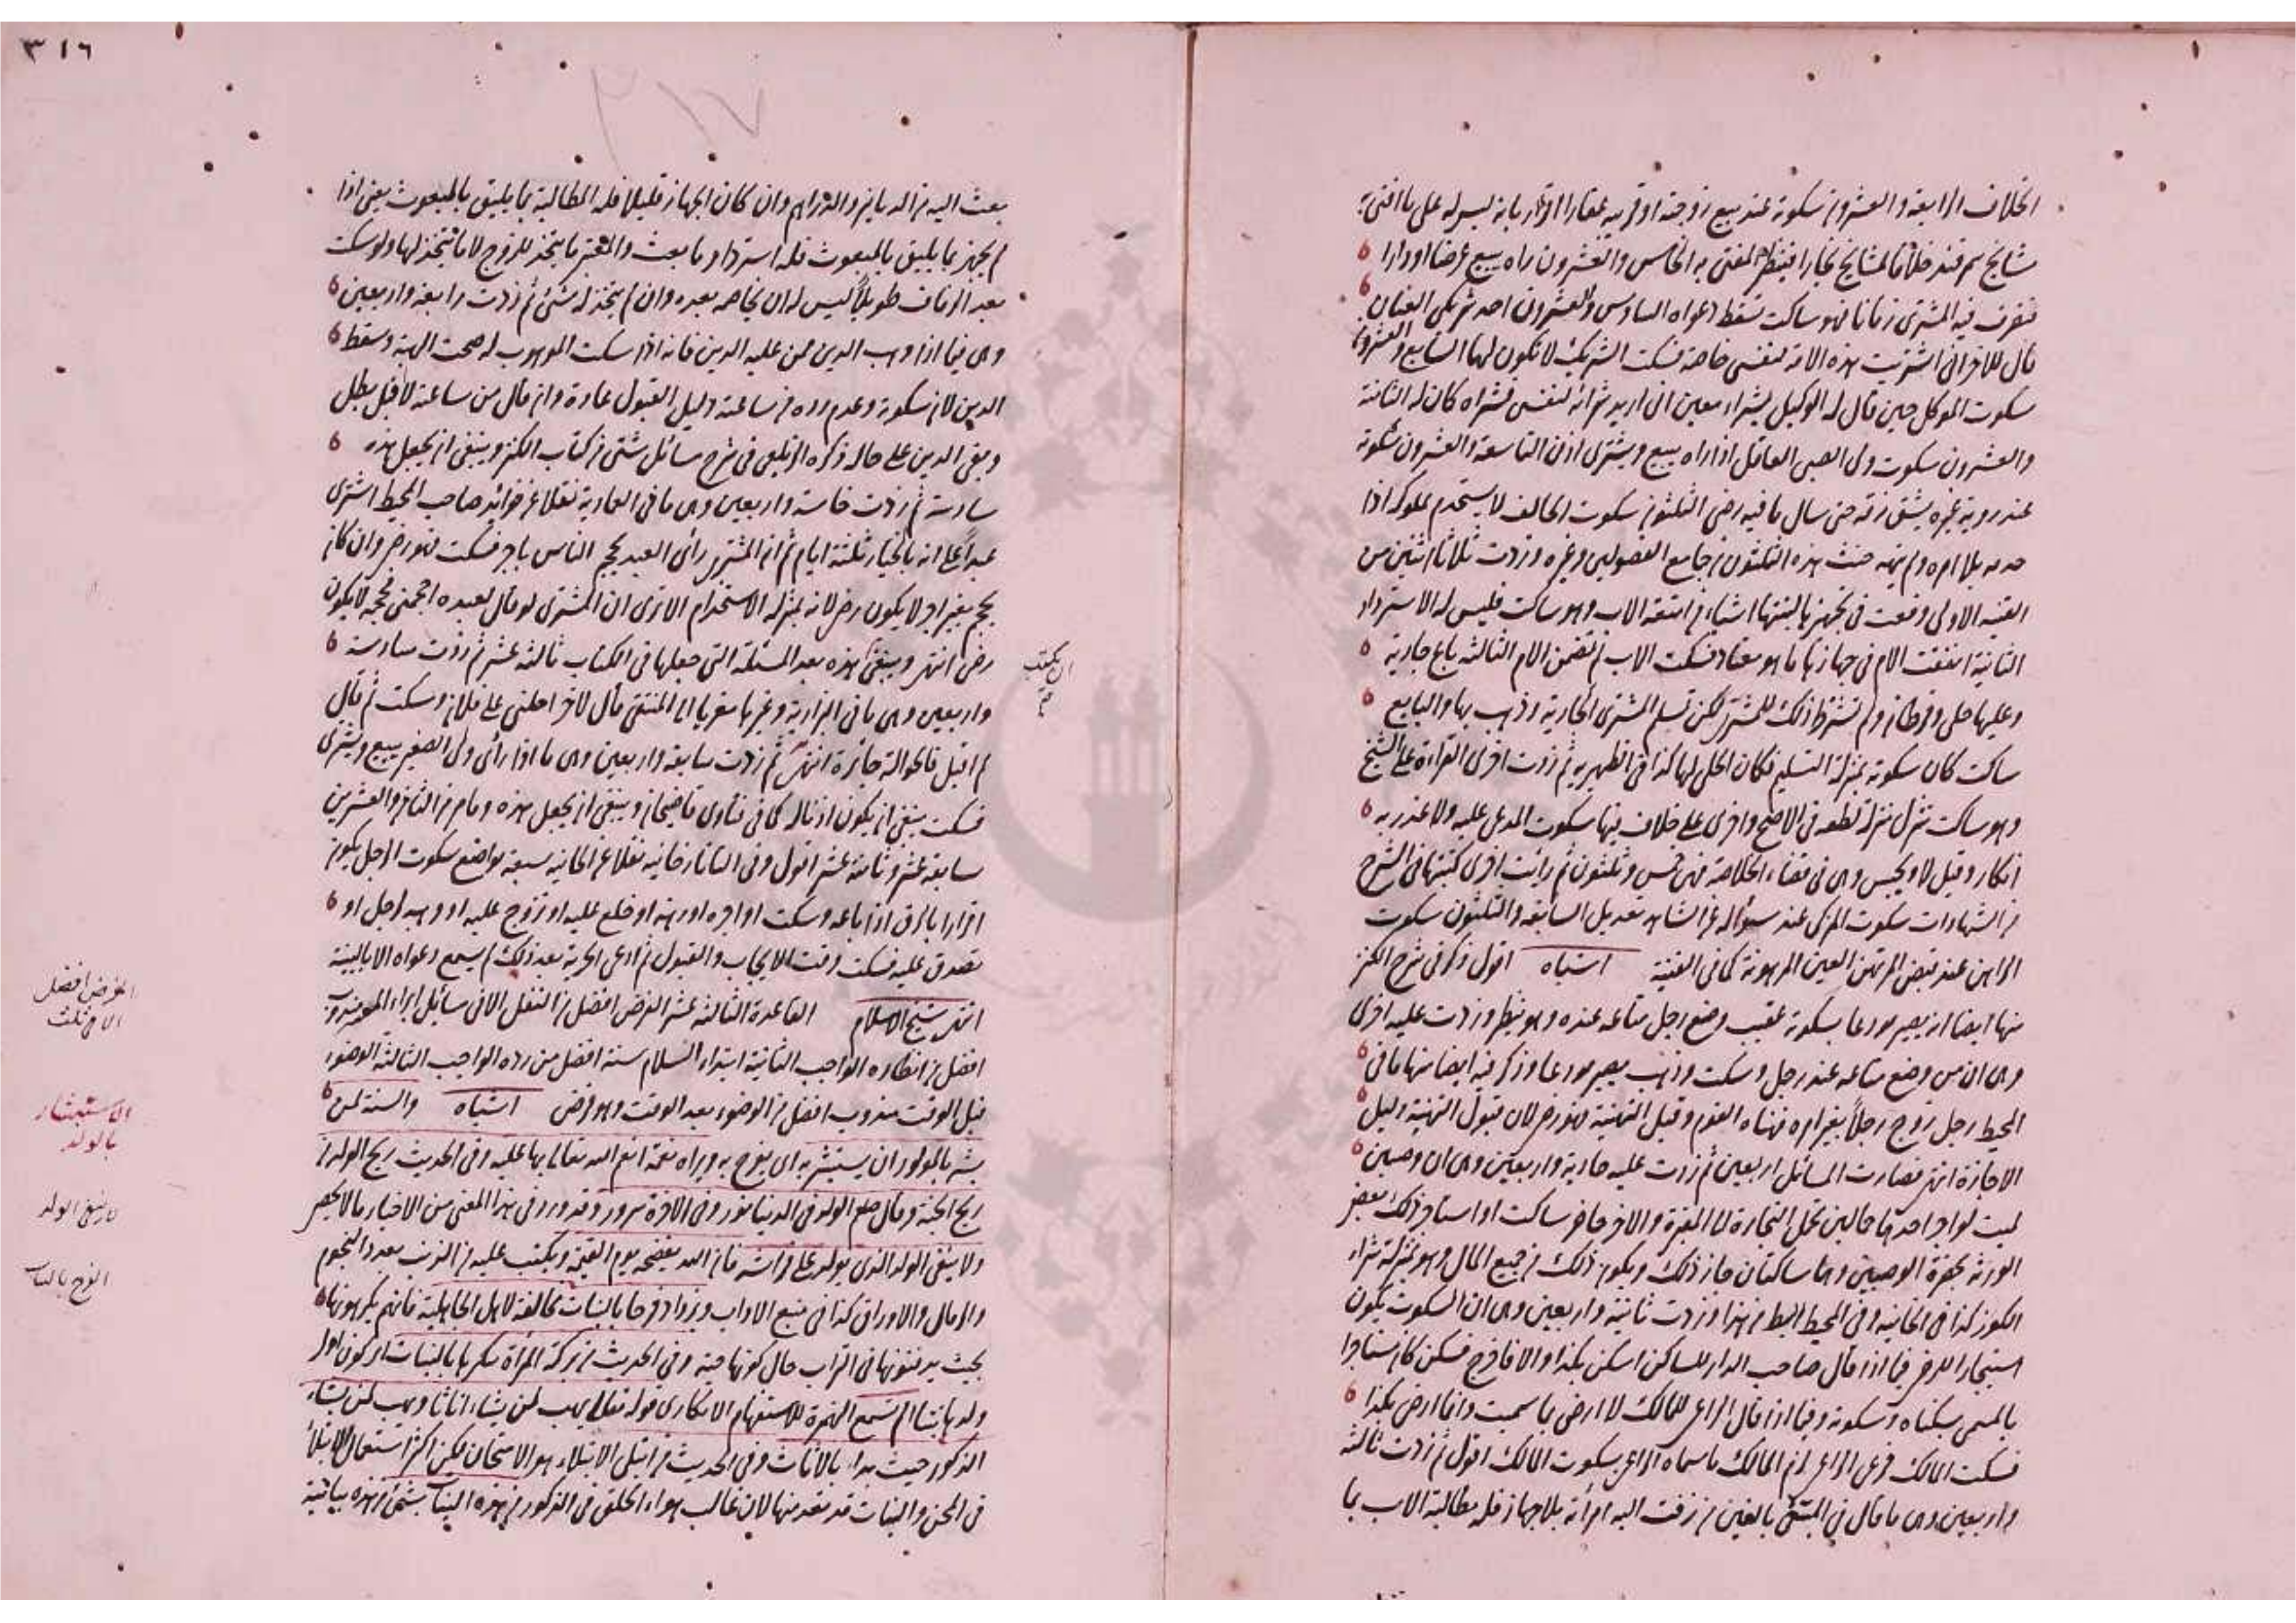 الخلاف الرابعة والعشرون سكوته عند بيع زوجته او قريبه عقارا اقرار بانه ليس له على ما افتى به
مشايخ سمرقند خلافا لمشايخ بخارا فينظر المفتى به الخامس والعشرون راه يبيع عرضا او دارا
فتصرف فيه المشترى زمانا فهو ساكت تسقط دعواه السادس والعشرون احد شريكى العنان
قال للاخر انى اشتريت هذه الامة لنفسى خاصة فسكت الشريك لا تكون لهما السابع والعشرون
سكوت الموكل حين قال له الوكيل بشراء معين انى اريد شرائه لنفسى فشراه كان له الثامنة
والعشرون سكوت ولى الصبى العاقل اذا راه يبيع ويشترى اذن التاسعة والعشرون سكوته
عند روية غيره يشق زقه حتى سال ما فيه رضى الثلثون سكوت الحالف لا يستخدم مملوكه اذا
خدمه بلا امره ولم ينهه حنث هذه الثلثون فى جامع الفصولين وغيره وزدت ثلاثا اثنتين من
القنيه الاولى دفعت فى تجهيزها لبنتها اشياء من امتعة الاب وهو ساكت فليس له الاسترداد
الثانية انفقت الام فى جهازها ما هو معتاد فسكت الاب لم تضمن الام الثالثة باع جارية
وعليها حلى وقرطان ولم تشترط ذلك للمشترى لكن تسلم المشترى الجارية وذهب بها والبايع
ساكت كان سكوته بمنزلة التسليم فكان الحلى لها كذا فى الظهيريه ثم زدت اخرى القراءة على الشيخ
وهو ساكت تنزل منزلة نطقه فى الاصح واخرى على خلاف فيها سكوت المدعى عليه ولا عذر به
انكار وقيل لا ويحبس وهى فى قضاء الخلاصة فهى خمس وثلثون ثم رايت اخرى كتبتها فى الشرح
من الشهادات سكوت المزكى عند سؤاله عن الشاهد تعديل السابعة والثلثون سكوت
الراهن عند قبض المرتهن العين المرهونة كما فى القنية اشباه اقول ذكر فى شرح الكنز
منها ايضا انه يصير مودعا بسكوته عقيب وضع رجل متاعه عنده وهو ينظر وزدت عليه اخرى
وهى ان من وضع متاعه عند رجل وسكت وذهب يصير مودعا وذكر فيه ايضا منها ما فى
المحيط رجل زوج رجلا بغير امره فهناه القوم وقبل التهنية فهو رضى لان قبول التهنية دليل
الاجازة انتهى فصارت المسائل اربعين ثم زدت عليه حادية واربعين وهى ان وصيين
لميت لو اجر احدهما حمالين لحمل الجنازة الى المقبرة والاخر حاضر ساكت او استاجر ذلك بعض
الورثة بحضرة الوصيين وهما ساكتان جاز ذلك ويكون ذلك من جميع المال وهو بمنزلة شراء
الكفن كذا فى الخانيه وفى المحيط ابسط من هذا وزدت ثانية واربعين وهى ان السكوت يكون
استيجارا للدخر فيما اذا قال صاحب الدار للساكن اسكن بكذا والا فاخرج فسكن كان مستاجرا
بالمسمى بسكناه وسكوته وفيما اذا قال الراعى للمالك لا ارضى بما سميت وانما ارضى بكذا
فسكت المالك فرعى الراعى لزم المالك ما سماه الراعى بسكوت المالك اقول ثم زدت ثالثة
واربعين وهى ما قال فى المبتغى بالغين من زفت اليه امرأته بلا جهاز فله مطالبة الاب بما
٣١٦
بعث اليه من الدنانير والدراهم وان كان الجهاز قليلا فله المطالبة بما يليق بالمبعوث يعنى اذا
لم يجهز بما يليق بالمبعوث فله استرداد ما بعث والمعتبر ما يتخذ للزوج لا ما يتخذ لها ولو سكت
بعد الزفاف طويلا ليس له ان يخاصمه بعده وان لم يتخذ له شئ ثم زدت رابعة واربعين
وهى فيما اذا وهب الدين ممن عليه الدين فانه اذا سكت الموهوب له صحت الهبة وسقط
الدين لان سكوته وعدم رده من ساعته دليل القبول عادة وان قال من ساعته لا قبل بطل
وبقى الدين على حاله ذكره الزيلعى فى شرح مسائل شتى من كتاب الكنز وينبغى ان يجعل هذه
سادسة ثم زدت خامسة واربعين وهى ما فى العمادية نقلا عن فوائد صاحب المحيط اشترى
عبدا على انه بالخيار ثلثة ايام ثم ان المشترى رأى العبد يحجم الناس باجر فسكت فهو رضى وان كان
يحجم بغير اجر لا يكون رضى لانه بمنزلة الاستخدام الا ترى ان المشترى لو قال لعبده احجمنى فحجمه لا يكون
رضى انتهى وينبغى هذه بعد المسئلة التى جعلها فى الكتاب ثالثة عشر ثم زدت سادسة
ان يكتب
صح
واربعين وهى ما فى البزازية وغيرها معزيا الى المنتقى قال لاخر احلنى على فلان وسكت ثم قال
لم اقبل فالحوالة جائزة انتهى ثم زدت سابعة واربعين وهى ما اذا رأى ولى الصغير يبيع ويشترى
فسكت ينبغى ان يكون اذنا له كما فى فتاوى قاضيخان وينبغى ان يجعل هذه وما مر من الثامن والعشرين
سابعة عشر وثامنة عشر اقول وفى التاتارخانيه نقلا عن الخانيه سبعة مواضع سكوت الرجل يكون
اقرارا بالرق اذا باعه وسكت او اجره او رهنه او خلع عليه او زوج عليه او وهبه لرجل او
تصدق عليه فسكت وقت الايجاب والقبول ثم ادعى الحرية بعد ذلك لم يسمع دعواه الا بالبينة
انتهى شيخ الاسلام القاعدة الثالثة عشر الفرض افضل من النفل الا فى مسائل ابراء المعسر مندوب
الفرض افضل
الا فى ثلث
افضل من انظاره الواجب الثانية ابتداء السلام سنة افضل من رده الواجب الثالثة الوضوء
قبل الوقت مندوب افضل من الوضوء بعد الوقت وهو فرض اشباه والسنة لمن
الاستبشار
بالولد
بشر بالمولود ان يستبشر به اى يفرح به ويراه نعمة انعم الله تعالى بها عليه وفى الحديث ريح الولد من
ريح الجنة وقال صلعم الولد فى الدنيا نور وفى الاخرة سرور وقد ورد فى هذا المعنى من الاخبار ما لا يحصر
لا ينفى الولد
ولا ينفى الولد الذى يولد على فراشه فان الله يفضحه يوم القيمة ويكتب عليه من الذنب بعدد النجوم
الفرح بالبنات
والرمال والاوراق كذا فى منبع الاداب ويزداد فرحا بالبنات مخالفة لاهل الجاهلية فانهم يكرهونها
بحيث يدفنونها فى التراب حال كونها حية وفى الحديث من بركة المرأة تبكيرها بالبنات اى كون اول
ولدها بنتا الم تسمع الهمزة للاستفهام الانكارى قوله تعالى يهب لمن يشاء اناثا ويهب لمن يشاء
الذكور حيث بدا بالاناث وفى الحديث من ابتلى الابتلاء هو الامتحان لكن اكثر استعمال الابتلاء
فى المحن والبنات قد تعد منها لان غالب هواء الخلق فى الذكور من هذه البنات بشئ من هذه بيانية